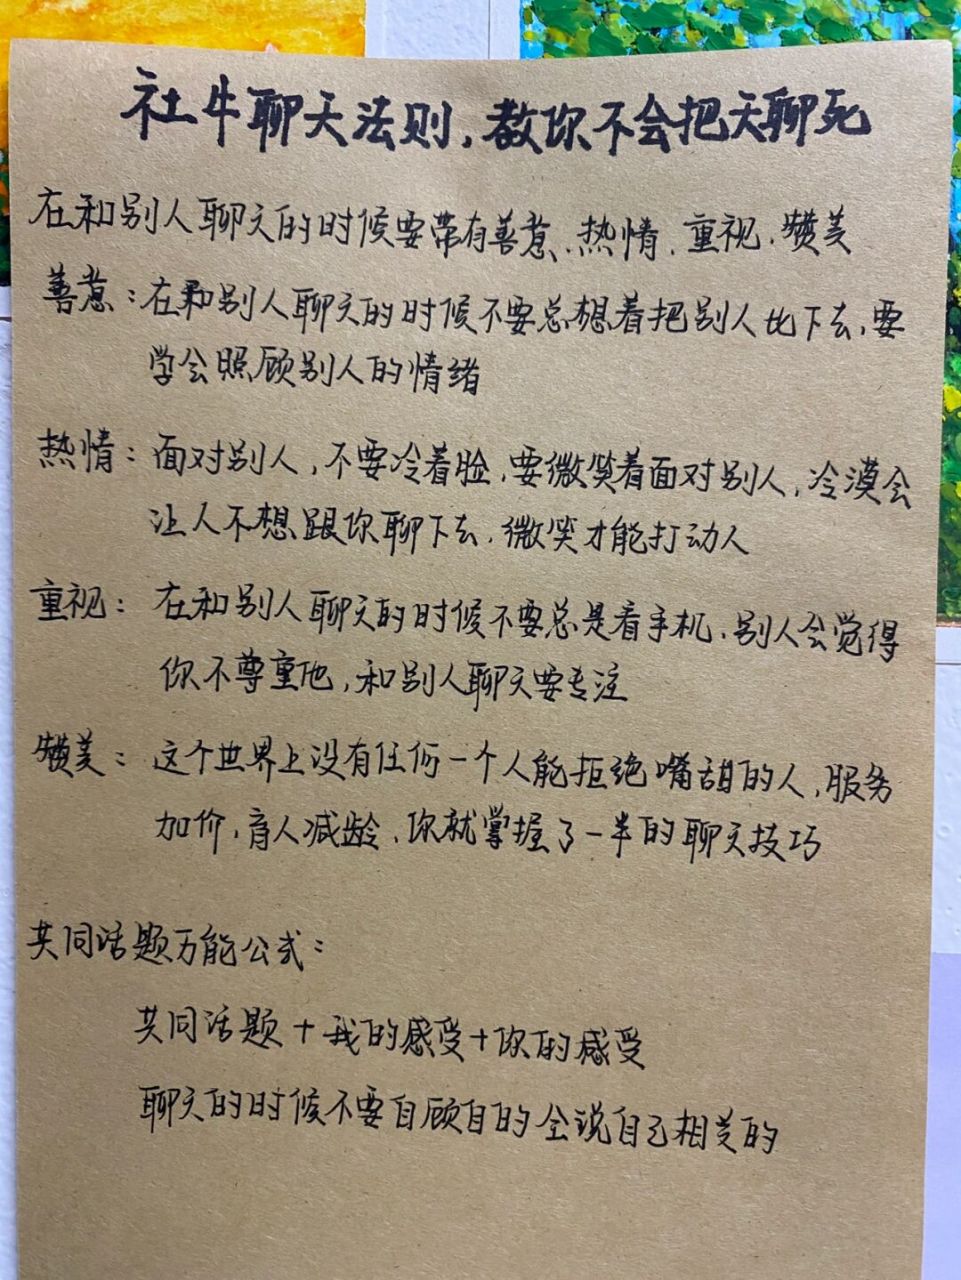 社牛聊天法则,教你不会把天聊死
在和别人聊天的时候要带有善意、热情、重视、赞美
善意:在和别人聊天的时候不要总想着把别人比下去,要
学会照顾别人的情绪
热情:面对别人,不要冷着脸,要微笑着面对别人,冷漠会
让人不想跟你聊下去,微笑才能打动人
重视:在和别人聊天的时候不要总是看手机,别人会觉得
你不尊重他,和别人聊天要专注
赞美:这个世界上没有任何一个人能拒绝嘴甜的人,服务
加价,育人减龄,你就掌握了一半的聊天技巧
共同话题万能公式:
共同话题+我的感受+你的感受
聊天的时候不要自顾自的全说自己相关的